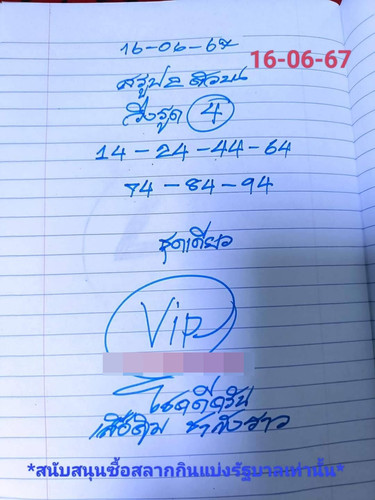 16-06-67
16-06-67
สรูป 2 ตัวบน
วิ่งรูด 4
14-24-44-64
74-84-94
ชุดเดียว
Vip
โชคดีครับ
เสือดุ่ม ชากังราว
*สนับสนุนซื้อสลากกินแบ่งรัฐบาลเท่านั้น*